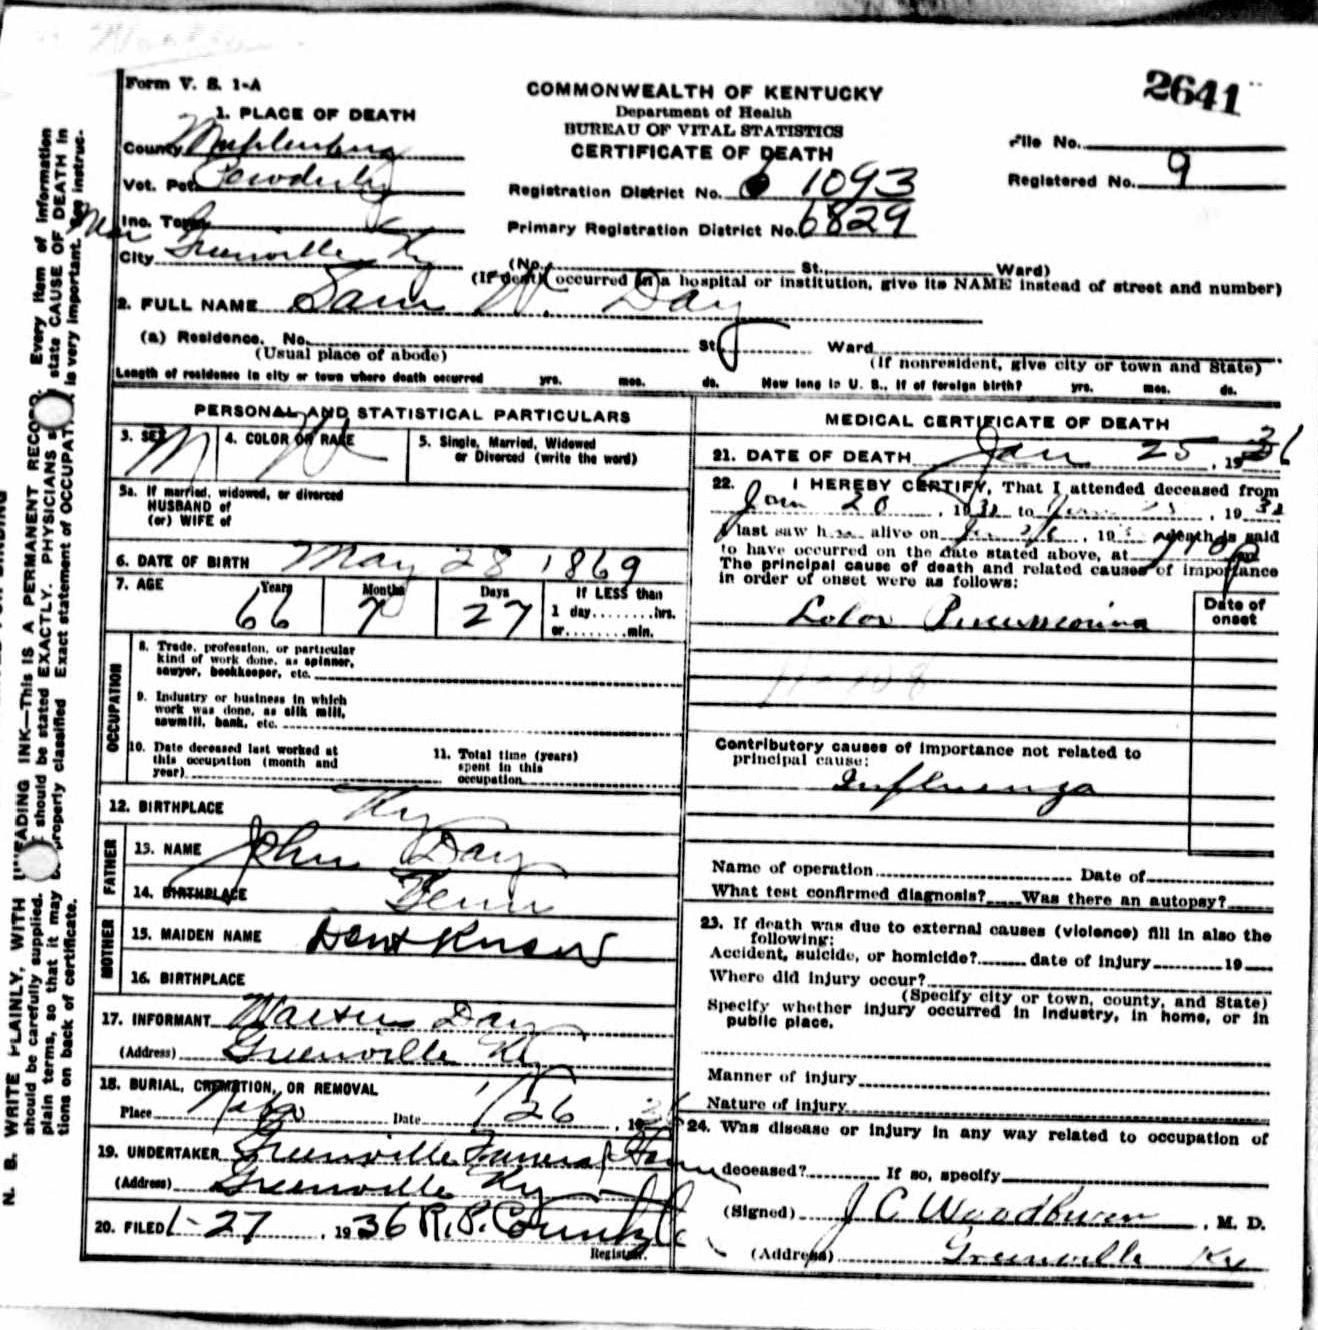 2641
Form V. S. 1-A
COMMONWEALTH OF KENTUCKY
Department of Health
BUREAU OF VITAL STATISTICS
CERTIFICATE OF DEATH
1. PLACE OF DEATH
County Muhlenberg
Vot. Pct. Powderly
Inc. Town
Near
City Greenville Ky
File No.
Registered No. 9
Registration District No. 1093
Primary Registration District No. 6829
(No. St. Ward)
(If death occurred in a hospital or institution, give its NAME instead of street and number)
2. FULL NAME Sam W. Day
(a) Residence. No. St. Ward
(Usual place of abode) (If nonresident, give city or town and State)
Length of residence in city or town where death occurred yrs. mos. ds. How long in U. S., if of foreign birth? yrs. mos. ds.
PERSONAL AND STATISTICAL PARTICULARS
3. SEX M 4. COLOR OR RACE W 5. Single, Married, Widowed
or Divorced (write the word)
5a. If married, widowed, or divorced
HUSBAND of
(or) WIFE of
6. DATE OF BIRTH May 28 1869
7. AGE Years Months Days If LESS than
66 7 27 1 day........hrs.
or........min.
OCCUPATION
8. Trade, profession, or particular
kind of work done, as spinner,
sawyer, bookkeeper, etc.
9. Industry or business in which
work was done, as silk mill,
sawmill, bank, etc.
10. Date deceased last worked at
this occupation (month and
year)
11. Total time (years)
spent in this
occupation
12. BIRTHPLACE Ky
FATHER
13. NAME John Day
14. BIRTHPLACE Tenn
MOTHER
15. MAIDEN NAME Dont Know
16. BIRTHPLACE
17. INFORMANT Day
(Address) Greenville Ky
18. BURIAL, CREMATION, OR REMOVAL
Place Date 1/26, 1936
19. UNDERTAKER Greenville Funeral Home
(Address) Greenville Ky
20. FILED 1-27, 1936 R. P.
Registrar.
MEDICAL CERTIFICATE OF DEATH
21. DATE OF DEATH Jan 25, 1936
22. I HEREBY CERTIFY, That I attended deceased from
Jan 20, 19 to , 19
I last saw h alive on , 19 death is said
to have occurred on the date stated above, at
The principal cause of death and related causes of importance
in order of onset were as follows:
Date of
onset
Lobar Pneumonia
Contributory causes of importance not related to
principal cause:
Influenza
Name of operation Date of
What test confirmed diagnosis? Was there an autopsy?
23. If death was due to external causes (violence) fill in also the
following:
Accident, suicide, or homicide? date of injury 19
Where did injury occur?
(Specify city or town, county, and State)
Specify whether injury occurred in industry, in home, or in
public place.
Manner of injury
Nature of injury
24. Was disease or injury in any way related to occupation of
deceased? If so, specify
(Signed) J C Woodburn, M. D.
(Address) Greenville Ky
N. B. WRITE PLAINLY, WITH UNFADING INK—THIS IS A PERMANENT RECORD. Every item of information
should be carefully supplied. should be stated EXACTLY. PHYSICIANS state CAUSE OF DEATH in
plain terms, so that it may be properly classified Exact statement of OCCUPATION is very important. See instruc-
tions on back of certificate.